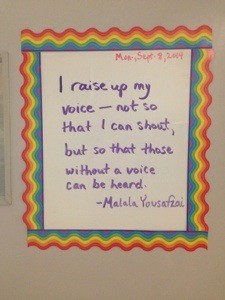 Mon, Sept. 8, 2014
I raise up my
voice — not so
that I can shout,
but so that those
without a voice
can be heard.
-Malala Yousafzai